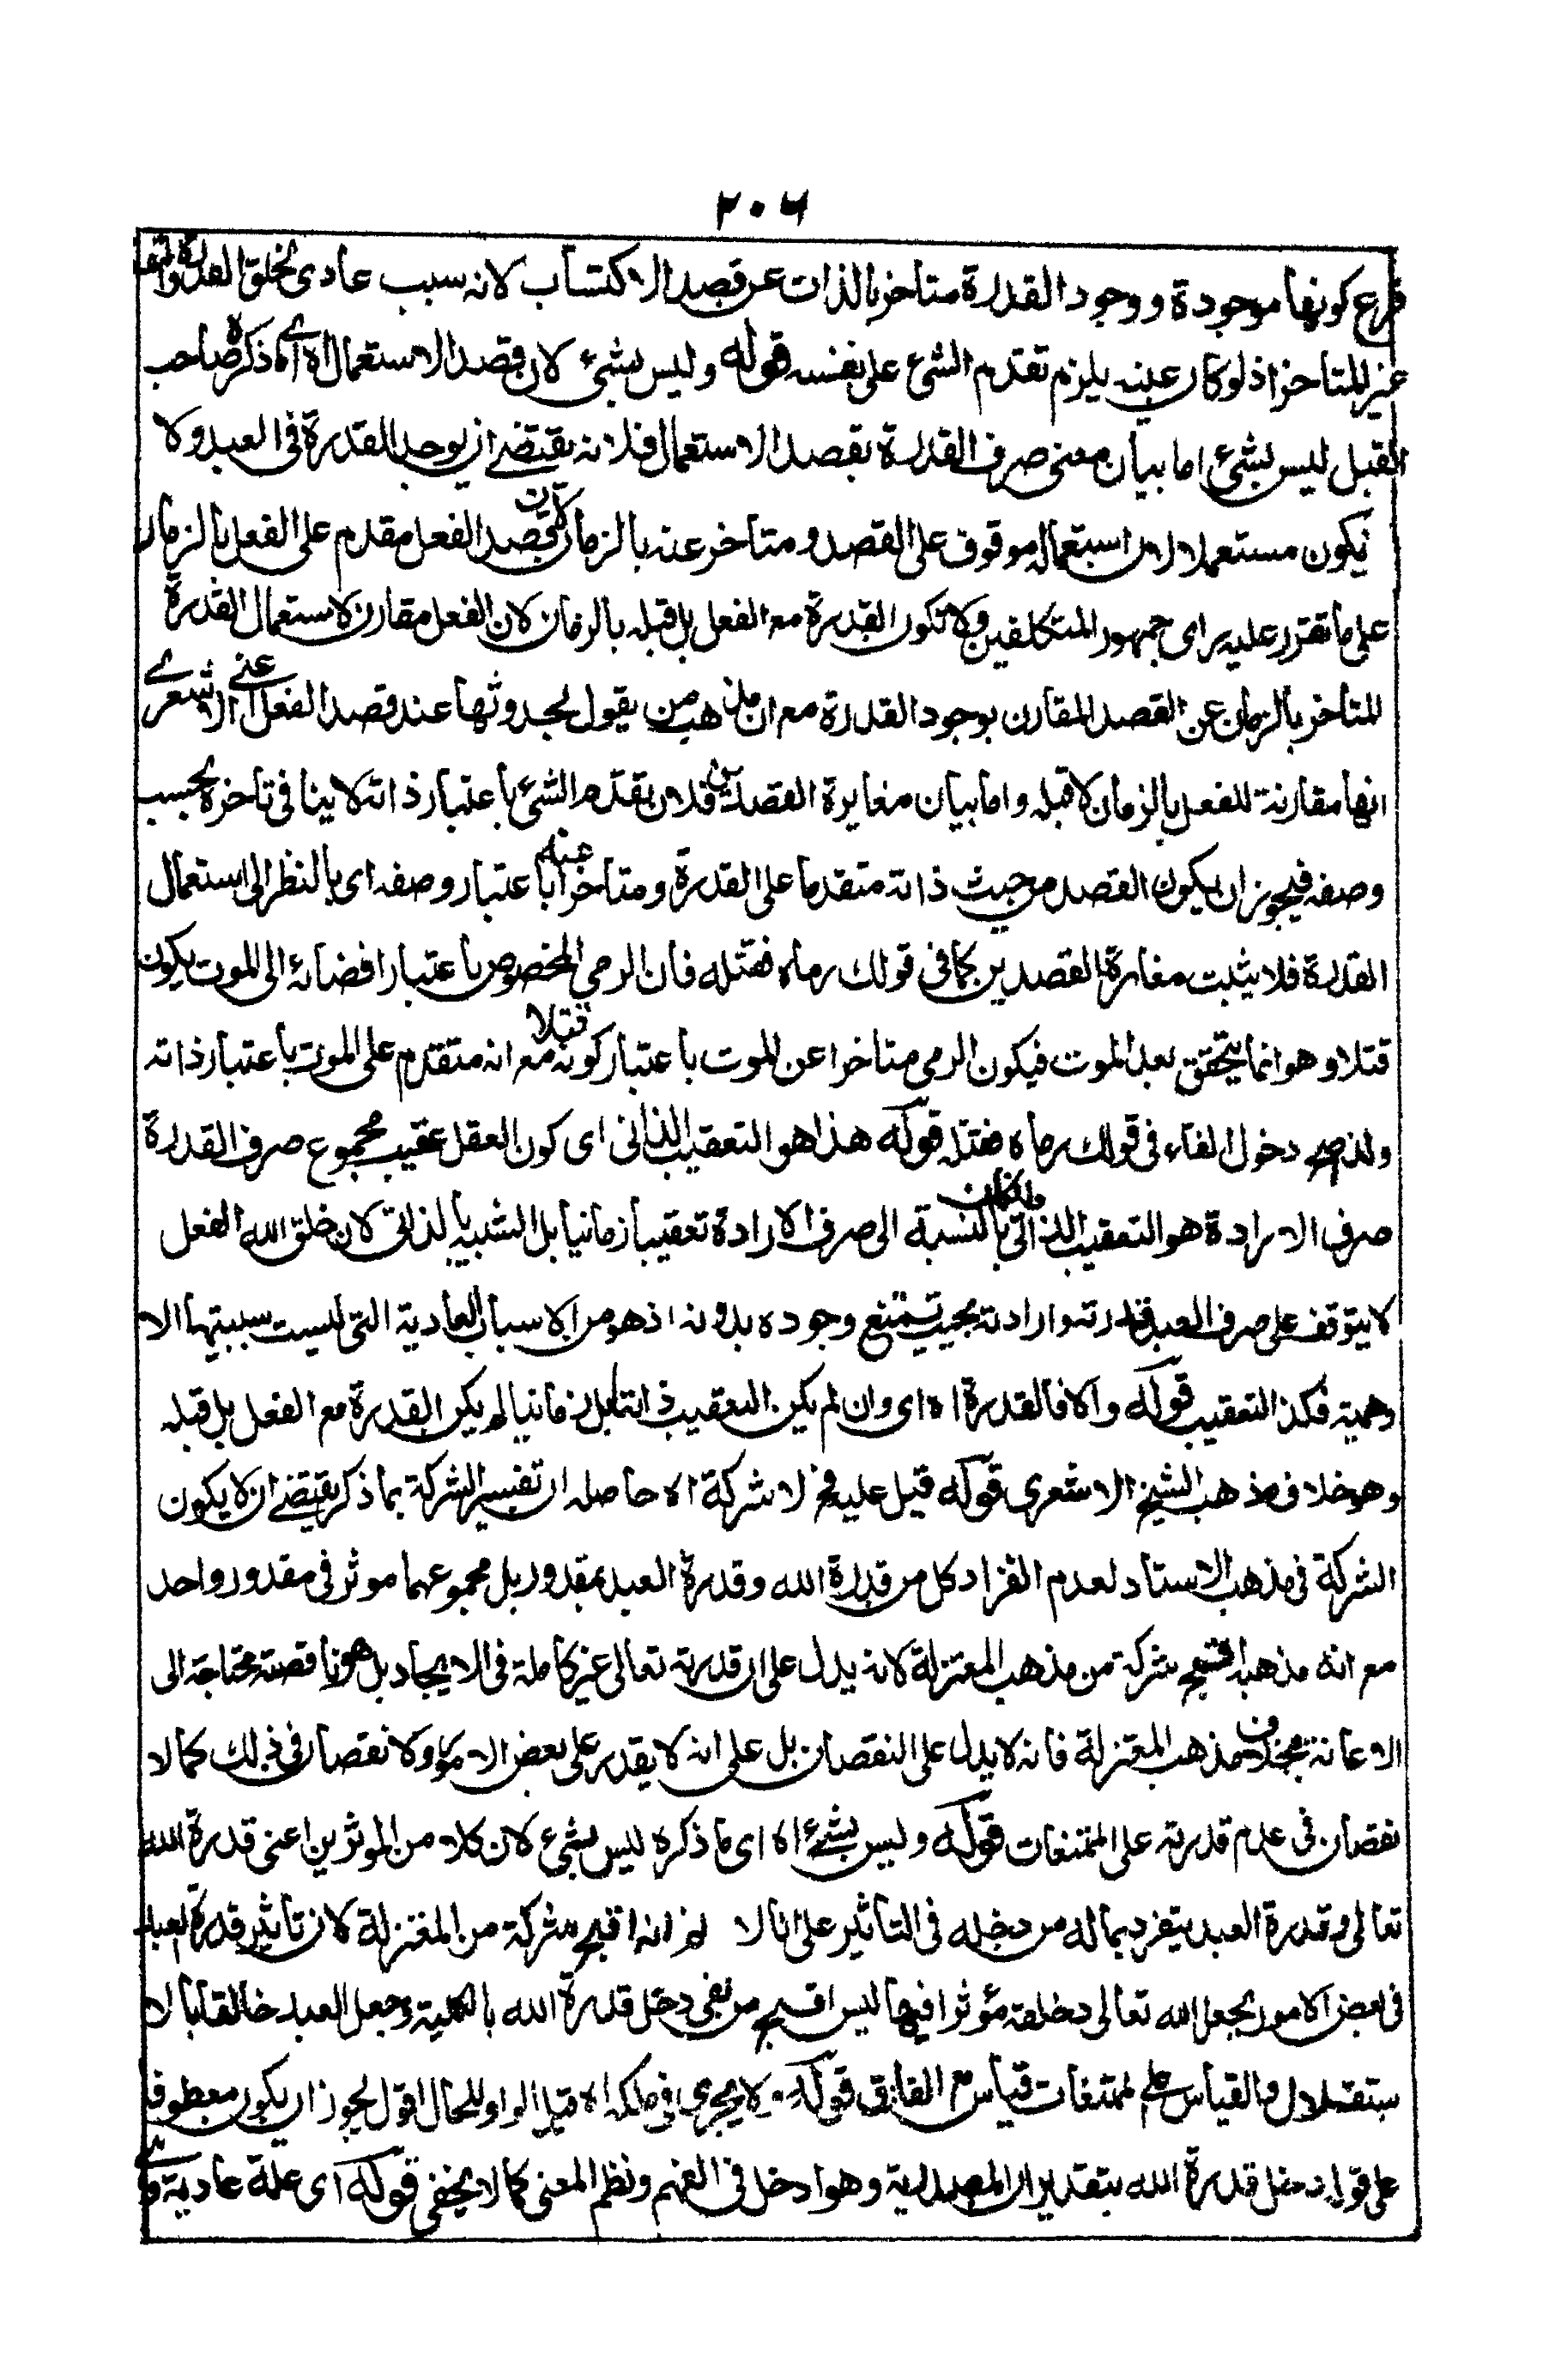 ٢٠٦
فرع كونها موجودة ووجود القدرة متاخر بالذات عن قصد الاكتساب لانه سبب عادى لخلق القدرة
غير المتاخر اذ لو كان عينه يلزم تقدم الشئ على نفسه قوله وليس بشئ لان قصد الاستعمال اه اى ما ذكره صاحب
القيل ليس بشئ اما بيان معنى صرف القدرة بقصد الاستعمال فلانه يقتضے ان يوجد القدرة فى العبد ولا
يكون مستعملا لان استعماله موقوف على القصد ومتاخر عنه بالزمان لان قصد الفعل مقدم على الفعل بالزمان
على ما تقرر عليه راى جمهور المتكلفين ولا تكون القدرة مع الفعل بل قبله بالزمان لان الفعل مقارن لاستعمال القدرة
المتاخر بالزمان عن القصد المقارن بوجود القدرة مع ان مذهب من يقول بحدوثها عند قصد الفعل اعنى الاشعرے
انها مقارنة للفعل بالزمان لا قبله واما بيان مغايرة القصدين فلان تقدم الشئ باعتبار ذاته لا ينافى تاخره بحسب
وصفه فيجوز ان يكون القصد من حيث ذاته متقدما على القدرة ومتاخرا عنه باعتبار وصفه اى بالنظر الى استعمال
القدرة فلا يثبت مغايرة القصدين كما فى قولك رماه فقتله فان الرمى المخصوص باعتبار افضائه الى الموت يكون
قتلا وهو انما يتحقق بعد الموت فيكون الرمى متاخرا عن الموت باعتبار كونه قتلا مع انه متقدم على الموت باعتبار ذاته
ولذا صح دخول الفاء فى قولك رماه فقتله قوله هذا هو التعقيب الذاتى اى كون العقل عقيب مجموع صرف القدرة
صرف الارادة هو التعقيب الذاتى وان كان بالنسبة الى صرف الارادة تعقيبا زمانيا بل الشبيه بالذاتى لان خلق الله الفعل
لا يتوقف على صرف العبد قدرته وارادته بحيث يمتنع وجوده بدونه اذ هو من الاسباب العادية التى ليست سببيتها الا
وهمية فكذا التعقيب قوله والا فالقدرة اه اى وان لم يكن التعقيب ذاتيا بل زمانيا لم يكن القدرة مع الفعل بل قبله
وهو خلاف مذهب الشيخ الاشعرى قوله قيل عليه فح لا شركة اه حاصله ان تفسير الشركة بما ذكر يقتضے ان لا يكون
الشركة فى مذهب الاستاد لعدم انفراد كل من قدرة الله وقدرة العبد بمقدور بل مجموعهما موثر فى مقدور واحد
مع انه مذهبه اقبح شركة من مذهب المعتزلة لانه يدل على ان قدرته تعالى غير كاملة فى الايجاد بل هو ناقصة محتاجة الى
الاعانة بخلاف مذهب المعتزلة فانه لا يدل على النقصان بل على انه لا يقدر على بعض الامور ولا نقصان فى ذلك كما لا
نقصان فى عدم قدرته على الممتنعات قوله وليس بشئ اه اى ما ذكره ليس بشئ لان كلا من الموثرين اعنى قدرة الله
تعالى وقدرة العبد يتفرد بماله من دخله فى التاثير على انا لا نم انه اقبح شركة من المعتزلة لان تاثير قدرة العبد
فى بعض الامور بجعل الله تعالى دخلقه مؤثرا فيها ليس اقبح من نفى دخل قدرة الله بالكلية وجعل العبد خالقا بالا
ستقلال والقياس على الممتنعات قياس مع الفارق قوله لا يجرى فى ملكه اه قيل الواو للحال اقول يجوز ان يكون معطوفا
على قوله دخل قدرة الله بتقدير ان المصدرية وهو ادخل فى الفهم ونظم المعنى كما لا يخفى قوله اى علة عادية